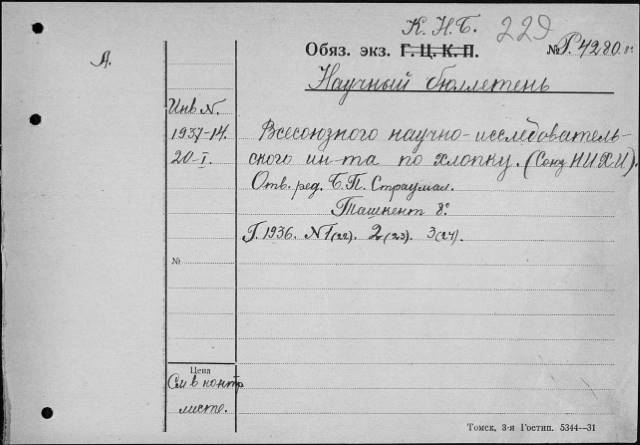 К. Н. Б. 229
Обяз. экз. Г. Ц. К. П. № Р. 4280
А.
Научный бюллетень
Инв N.
1937-14.
20-I.
Всесоюзного научно-исследователь-
ского ин-та по хлопку. (Союз НИХИ).
Отв. ред. Б. П. Страумал.
Ташкент 8°
Г. 1936. N1(22). 2(23). 3(24).
№
Цена
См в контр
листе.
Томск, 3-я Гостип. 5344—31